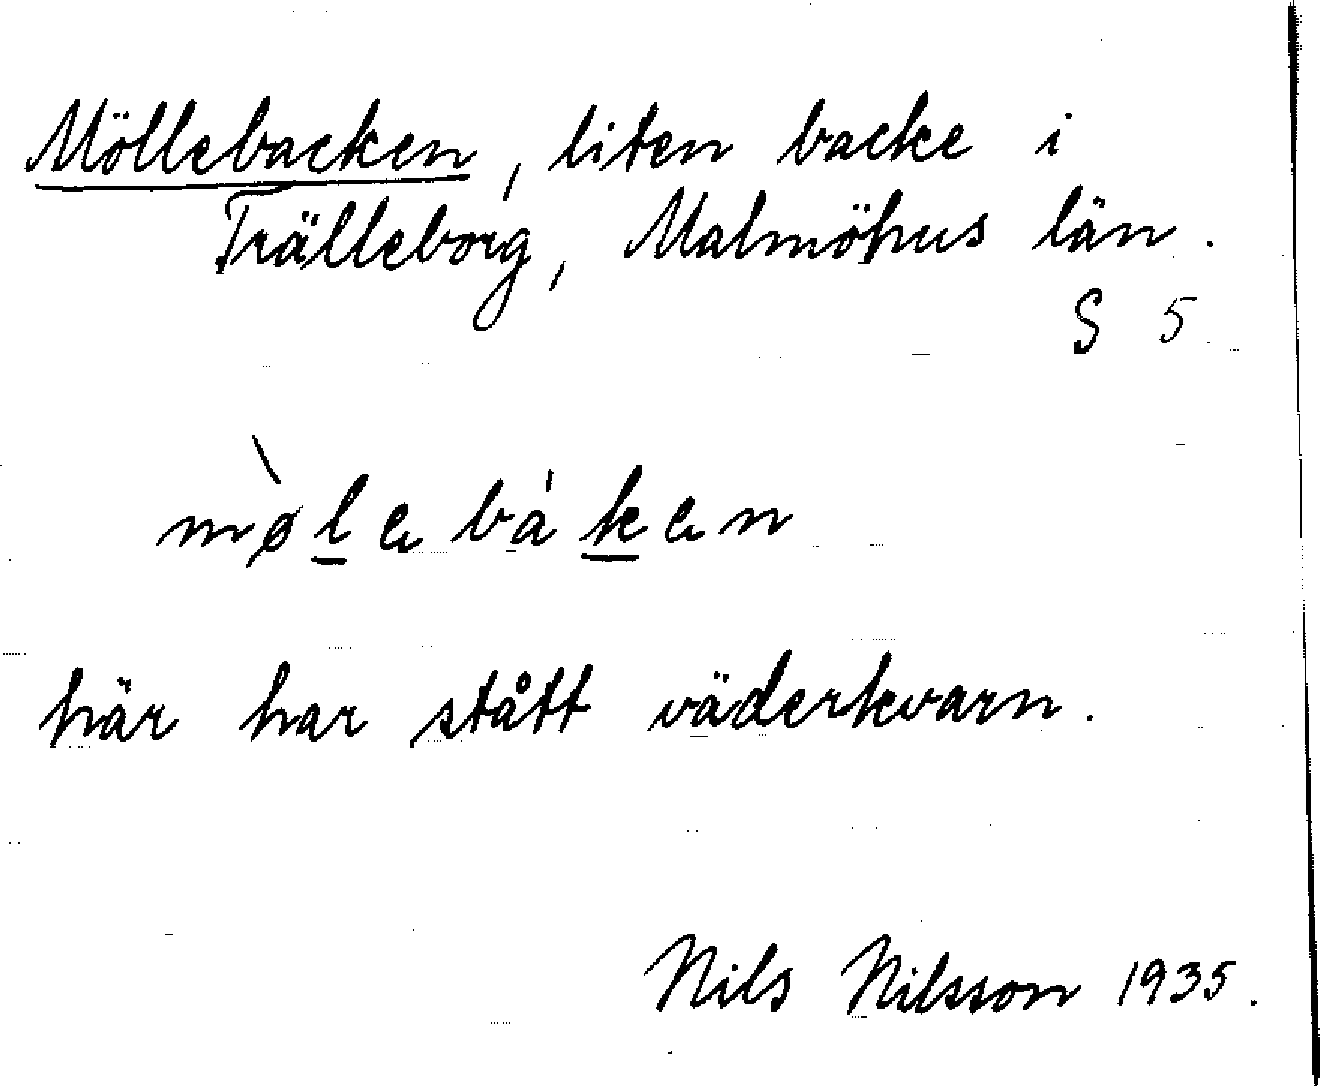 Möllebacken, liten backe i
Trälleborg, Malmöhus län.
S 5
mø̀lebáken
här har stått väderkvarn.
Nils Nilsson 1935.